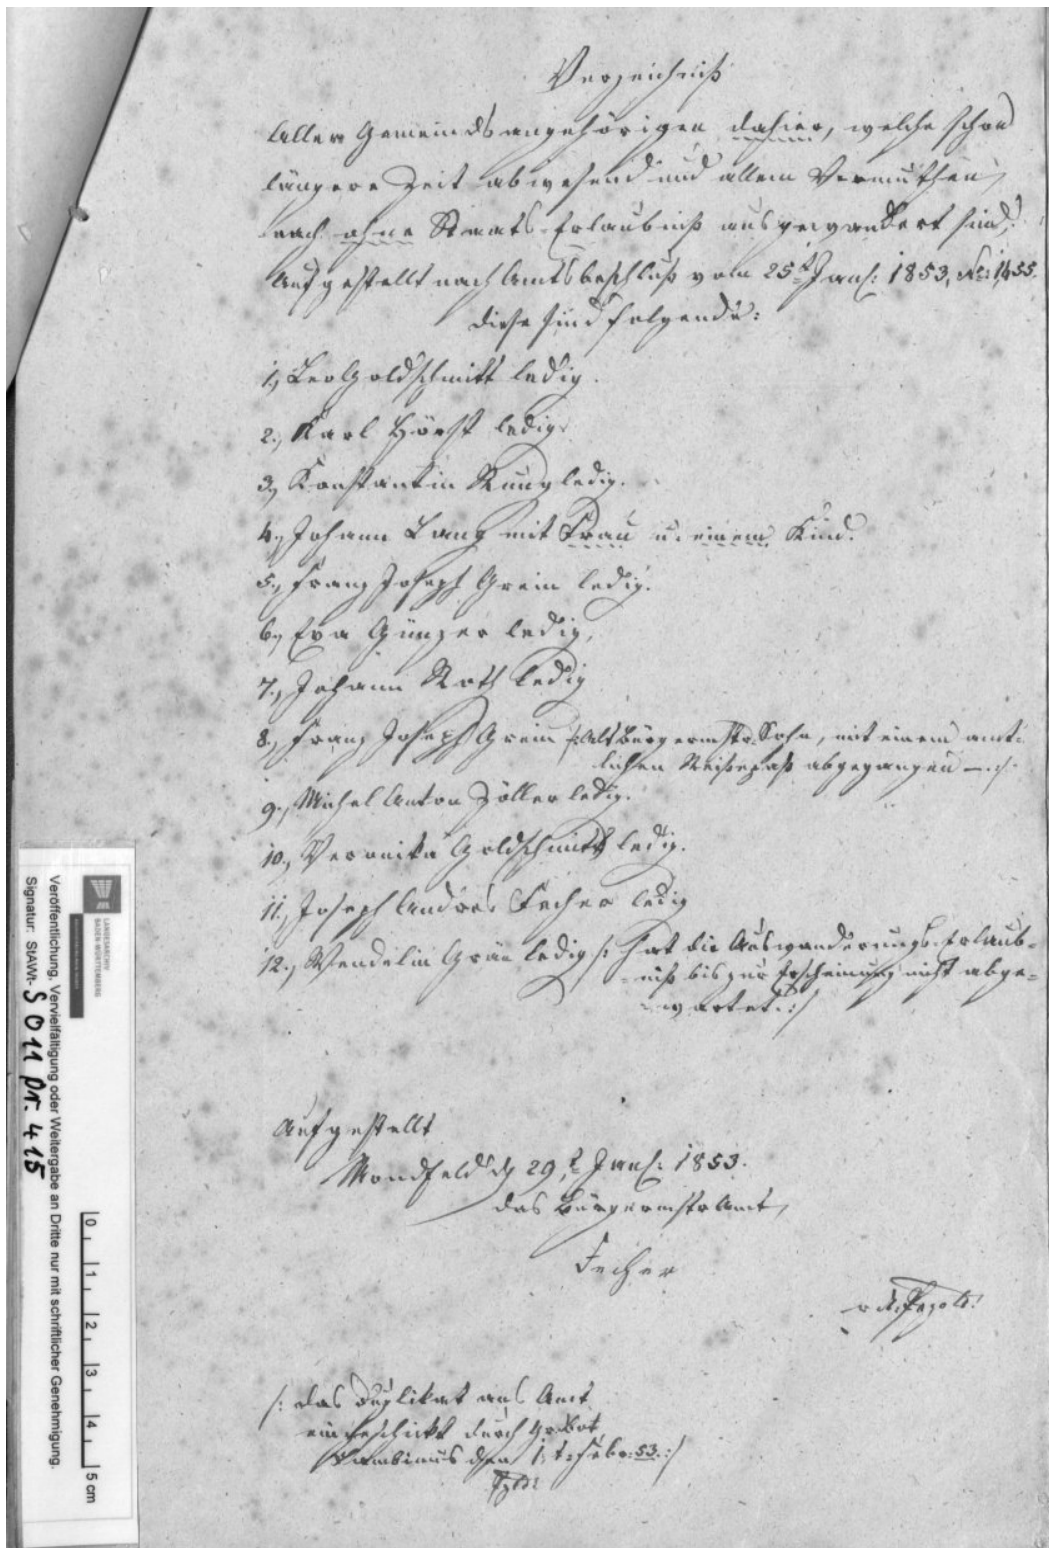 Verzeichniß
Aller Gemeindsangehörigen dahier, welche schon
längere Zeit abwesend und allem Vermuthen
nach ohne Staats-Erlaubniß ausgewandert sind,
Aufgestellt nach Amtsbeschluß vom 25t Janr: 1853, No: 1455.
diese sind folgende:
1., Leo Goldschmitt ledig.
2., Karl Hörst ledig.
3., Konstantin Rung ledig.
4., Johann Lang mit Frau u. einem Kind.
5., Franz Joseph Grein ledig.
6., Eva Günzer ledig,
7., Johann Roth ledig
8., Franz Joseph Grein /: Altbürgermstr. Sohn, mit einem amt-
lichen Reißepaß abgegangen —:/.
9., Michel Anton Zöller ledig.
10., Veronika Goldschmitt ledig.
11., Joseph Andres Fecher ledig
12., Wendelin Grän ledig /: hat die Auswanderungs-Erlaub-
-niß bis zur Erscheinung nicht abge-
wartet. :/
Aufgestellt
Mondfeld d 29t Janr: 1853.
das Bürgermstr Amt,
Fecher
/: das Duplikat ans Amt
eingeschickt durch Bot
den 1t Febr: 53. :/
LANDESARCHIV
BADEN-WÜRTTEMBERG
Veröffentlichung, Vervielfältigung oder Weitergabe an Dritte nur mit schriftlicher Genehmigung.
Signatur: StAWt- S 011 Nr. 415
0 1 2 3 4 5 cm